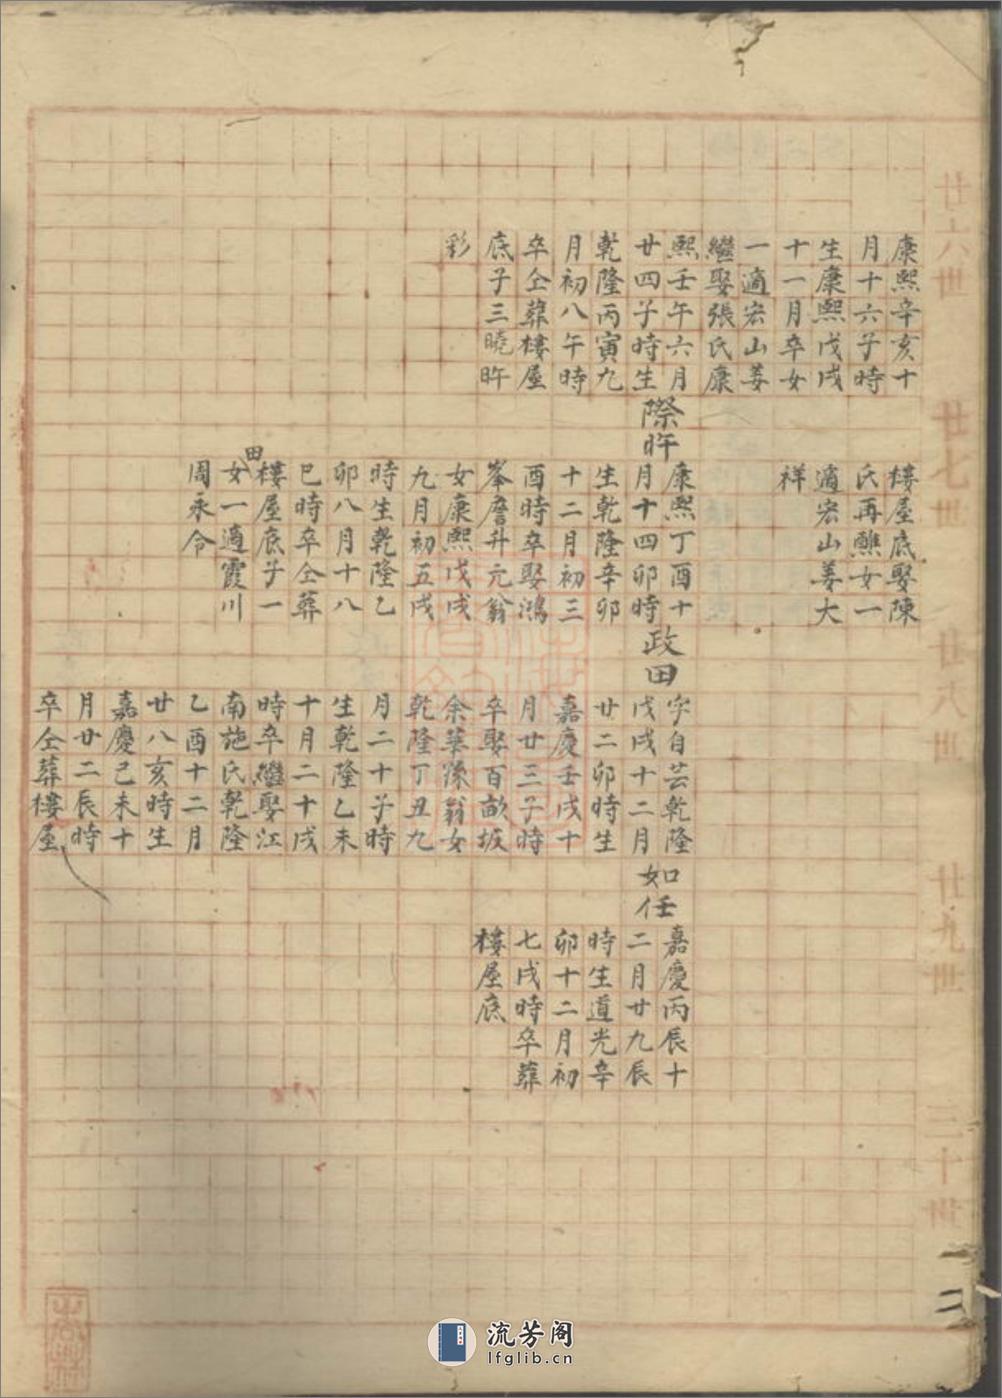 廿六世
康熙辛亥十
月十六子時
生康熙戊戌
十一月卒女
一適宏山姜
繼娶張氏康
熙壬午六月
廿四子時生
乾隆丙寅九
月初八午時
卒仝葬樓屋
底子三曉旿
彩
廿七世
樓屋底娶陳
氏再醮女一
適宏山姜大
祥
際旿
康熙丁酉十
月十四卯時
生乾隆辛卯
十二月初三
酉時卒娶鴻
峯詹升元翁
女康熙戊戌
九月初五戌
時生乾隆乙
卯八月十八
巳時卒仝葬
樓屋底子一
田
女一適霞川
周永令
廿八世
政田
字自芸乾隆
戊戌十二月
廿二卯時生
嘉慶壬戌十
月廿三子時
卒娶百畝坂
余 翁女
乾隆丁丑九
月二十子時
生乾隆乙未
十月二十戌
時卒繼娶江
南施氏乾隆
乙酉十二月
廿八亥時生
嘉慶己未十
月廿二辰時
卒仝葬樓屋
廿九世
如任
嘉慶丙辰十
二月廿九辰
時生道光辛
卯十二月初
七戌時卒葬
樓屋底
三十世
一二
流芳阁
lfglib.cn